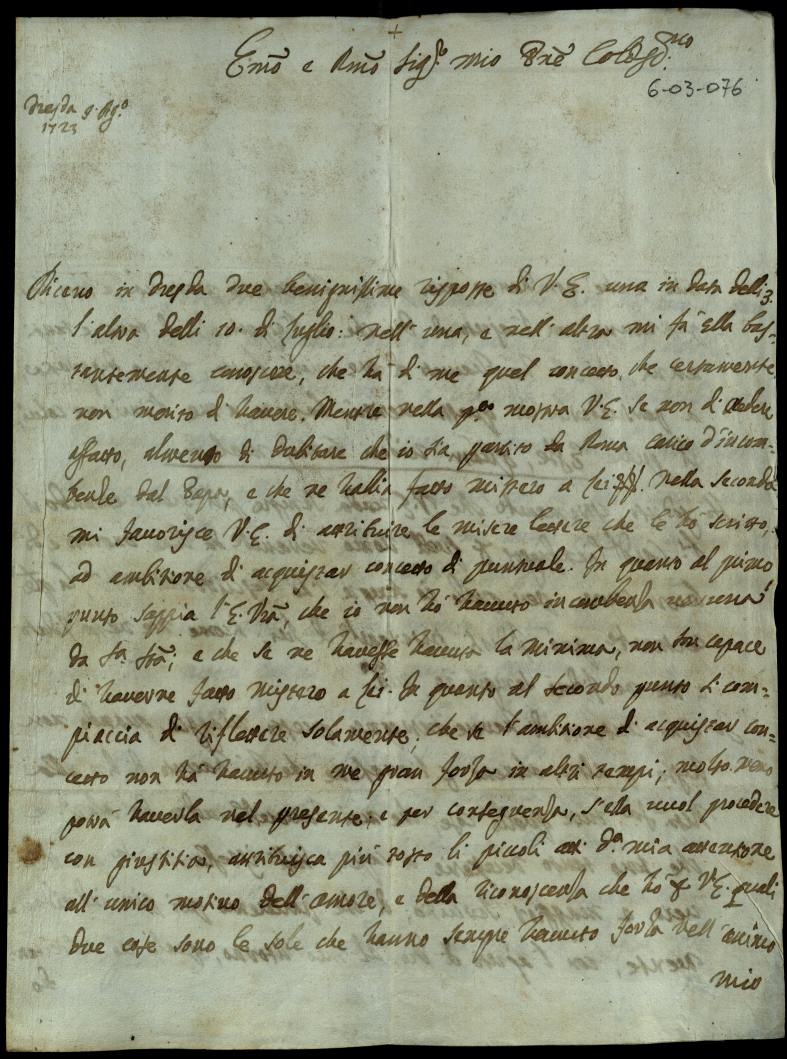 +
Em̃o e Rm̃o Sig.r mio Pñe Col.mo
6-03-076
Dresda 9. Ag.o
1723
Ricevo in Dresda due benignissime risposte di V. E. una in data delli 3.
l'altra delli 10. di luglio: nell'una, e nell'altra mi fà Ella bas-
tantemente conoscere, che hà di me quel concetto, che certamente
non merito d'havere. Mentre nella p.a mostra V. E. se non di credere
affatto, almeno di dubitare che io sia partito da Roma carico d'incom-
benze dal Papa, e che ne habbia fatto mistero a lei. Nella seconda
mi favorisce V. E. di attribuire le misere lettere che le hò scritto,
ad ambitione di acquistar concetto di puntuale. In quanto al primo
punto sappia l'E. Vrã, che io non hò havuto incombenza nessuna
da S.a Stà, e che se ne havesse havuta la minima, non son capace
di haverne fatto mistero a lei. In quanto al secondo punto si com-
piaccia di riflettere solamente, che se l'ambitione di acquistar con-
cetto non hà havuto in me gran forza in altri tempi, molto meno
potrà haverla nel presente; e per conseguenza, s'ella vuol procedere
con giustitia, attribuisca più tosto li piccoli atti d.a mia attentione
all'unico motivo dell'amore, e della riconoscenza che hò p V. E. quali
due cose sono le sole che hanno sempre havuto forza nell'animo
mio